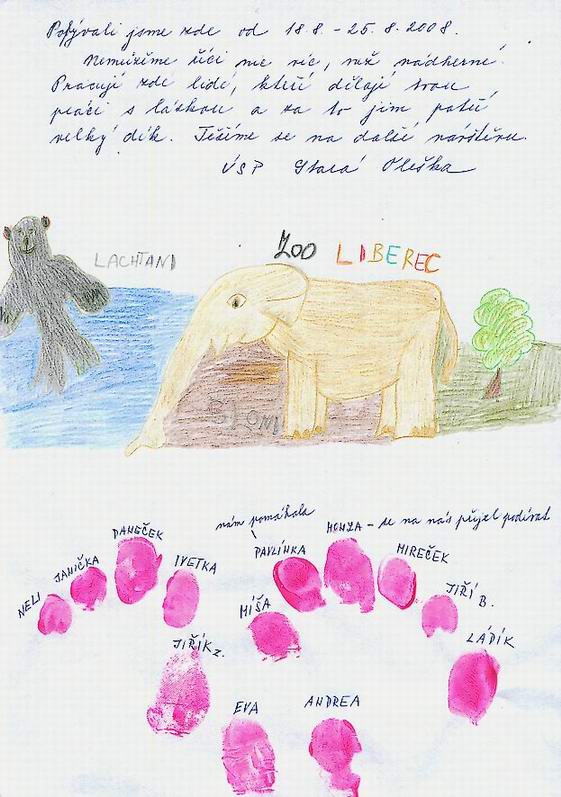 Pobývali jsme zde od 18.8. - 25.8.2008.
Nemůžeme říci nic víc, než nádherné.
Pracují zde lidé, kteří dělají svou
práci s láskou a za to jim patří
velký dík. Těšíme se na další návštěvu.
ÚSP Stará Oleška
ZOO LIBEREC
LACHTANI
SLONI
nám pomáhala
HONZA - se na nás přijel podívat
DANEČEK
PAVLÍNKA
MIREČEK
JANIČKA
IVETKA
NELI
MÍŠA
JIŘÍ B.
JIŘÍK Z.
LÁDÍK
EVA
ANDREA